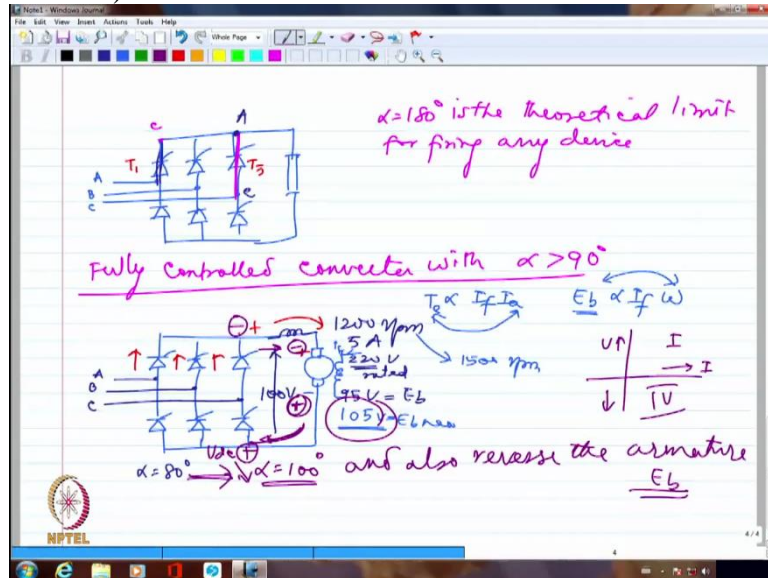 Note1 - Windows Journal
File Edit View Insert Actions Tools Help
Whole Page
B I
C
A
T1
T5
A
B
C
c
α=180° is the theoretical limit
for firing any device
Fully controlled converter with α>90°
Te ∝ If Ia
Eb ∝ If ω
⊖ +
1200 rpm
5 A
220 V
rated
1500 rpm
A
B
C
100V
95V = Eb
105V = Eb new
V↑
I
→ I
↓
IV
Vdc
α=80° → α=100° and also reverse the armature
Eb
NPTEL
4/4
4